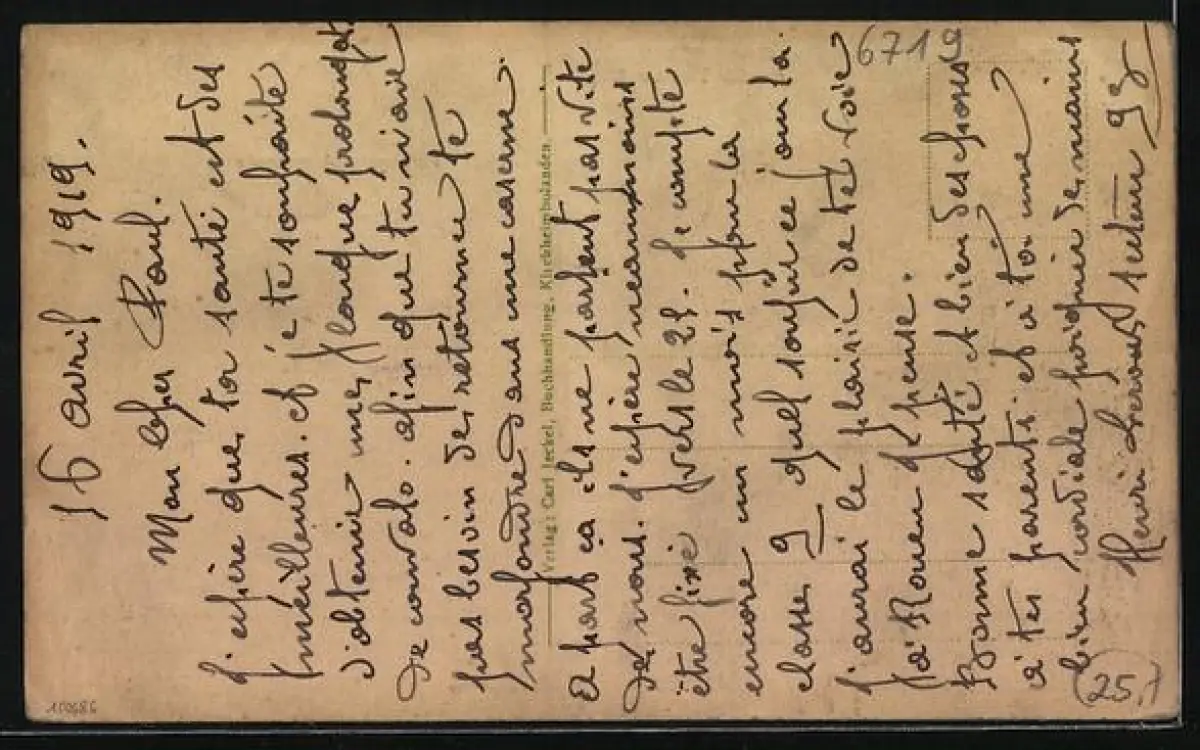 16 avril 1919.
Mon cher Paul.
J'espère que ta santé est des
meilleures. et je te souhaite
d'obtenir une longue prolongat
de convalo. afin que tu n'aie
pas besoin de retourner te
morfondre dans une caserne.
A part ça ils ne parlent pas vite
de nous. J'espère néanmoins
être fixé vers le 25. Je compte
encore un mois pour la
classe 9 quel soupir ce jour la.
J'aurai le plaisir de te voir
à Rouen je pense.
Bonne santé et bien des choses
à tes parents. et à toi une
bien cordiale poignée de mains
Henri
Verlag: Carl Jeckel, Buchhandlung, Kirchheimbolanden.
6719
25,-